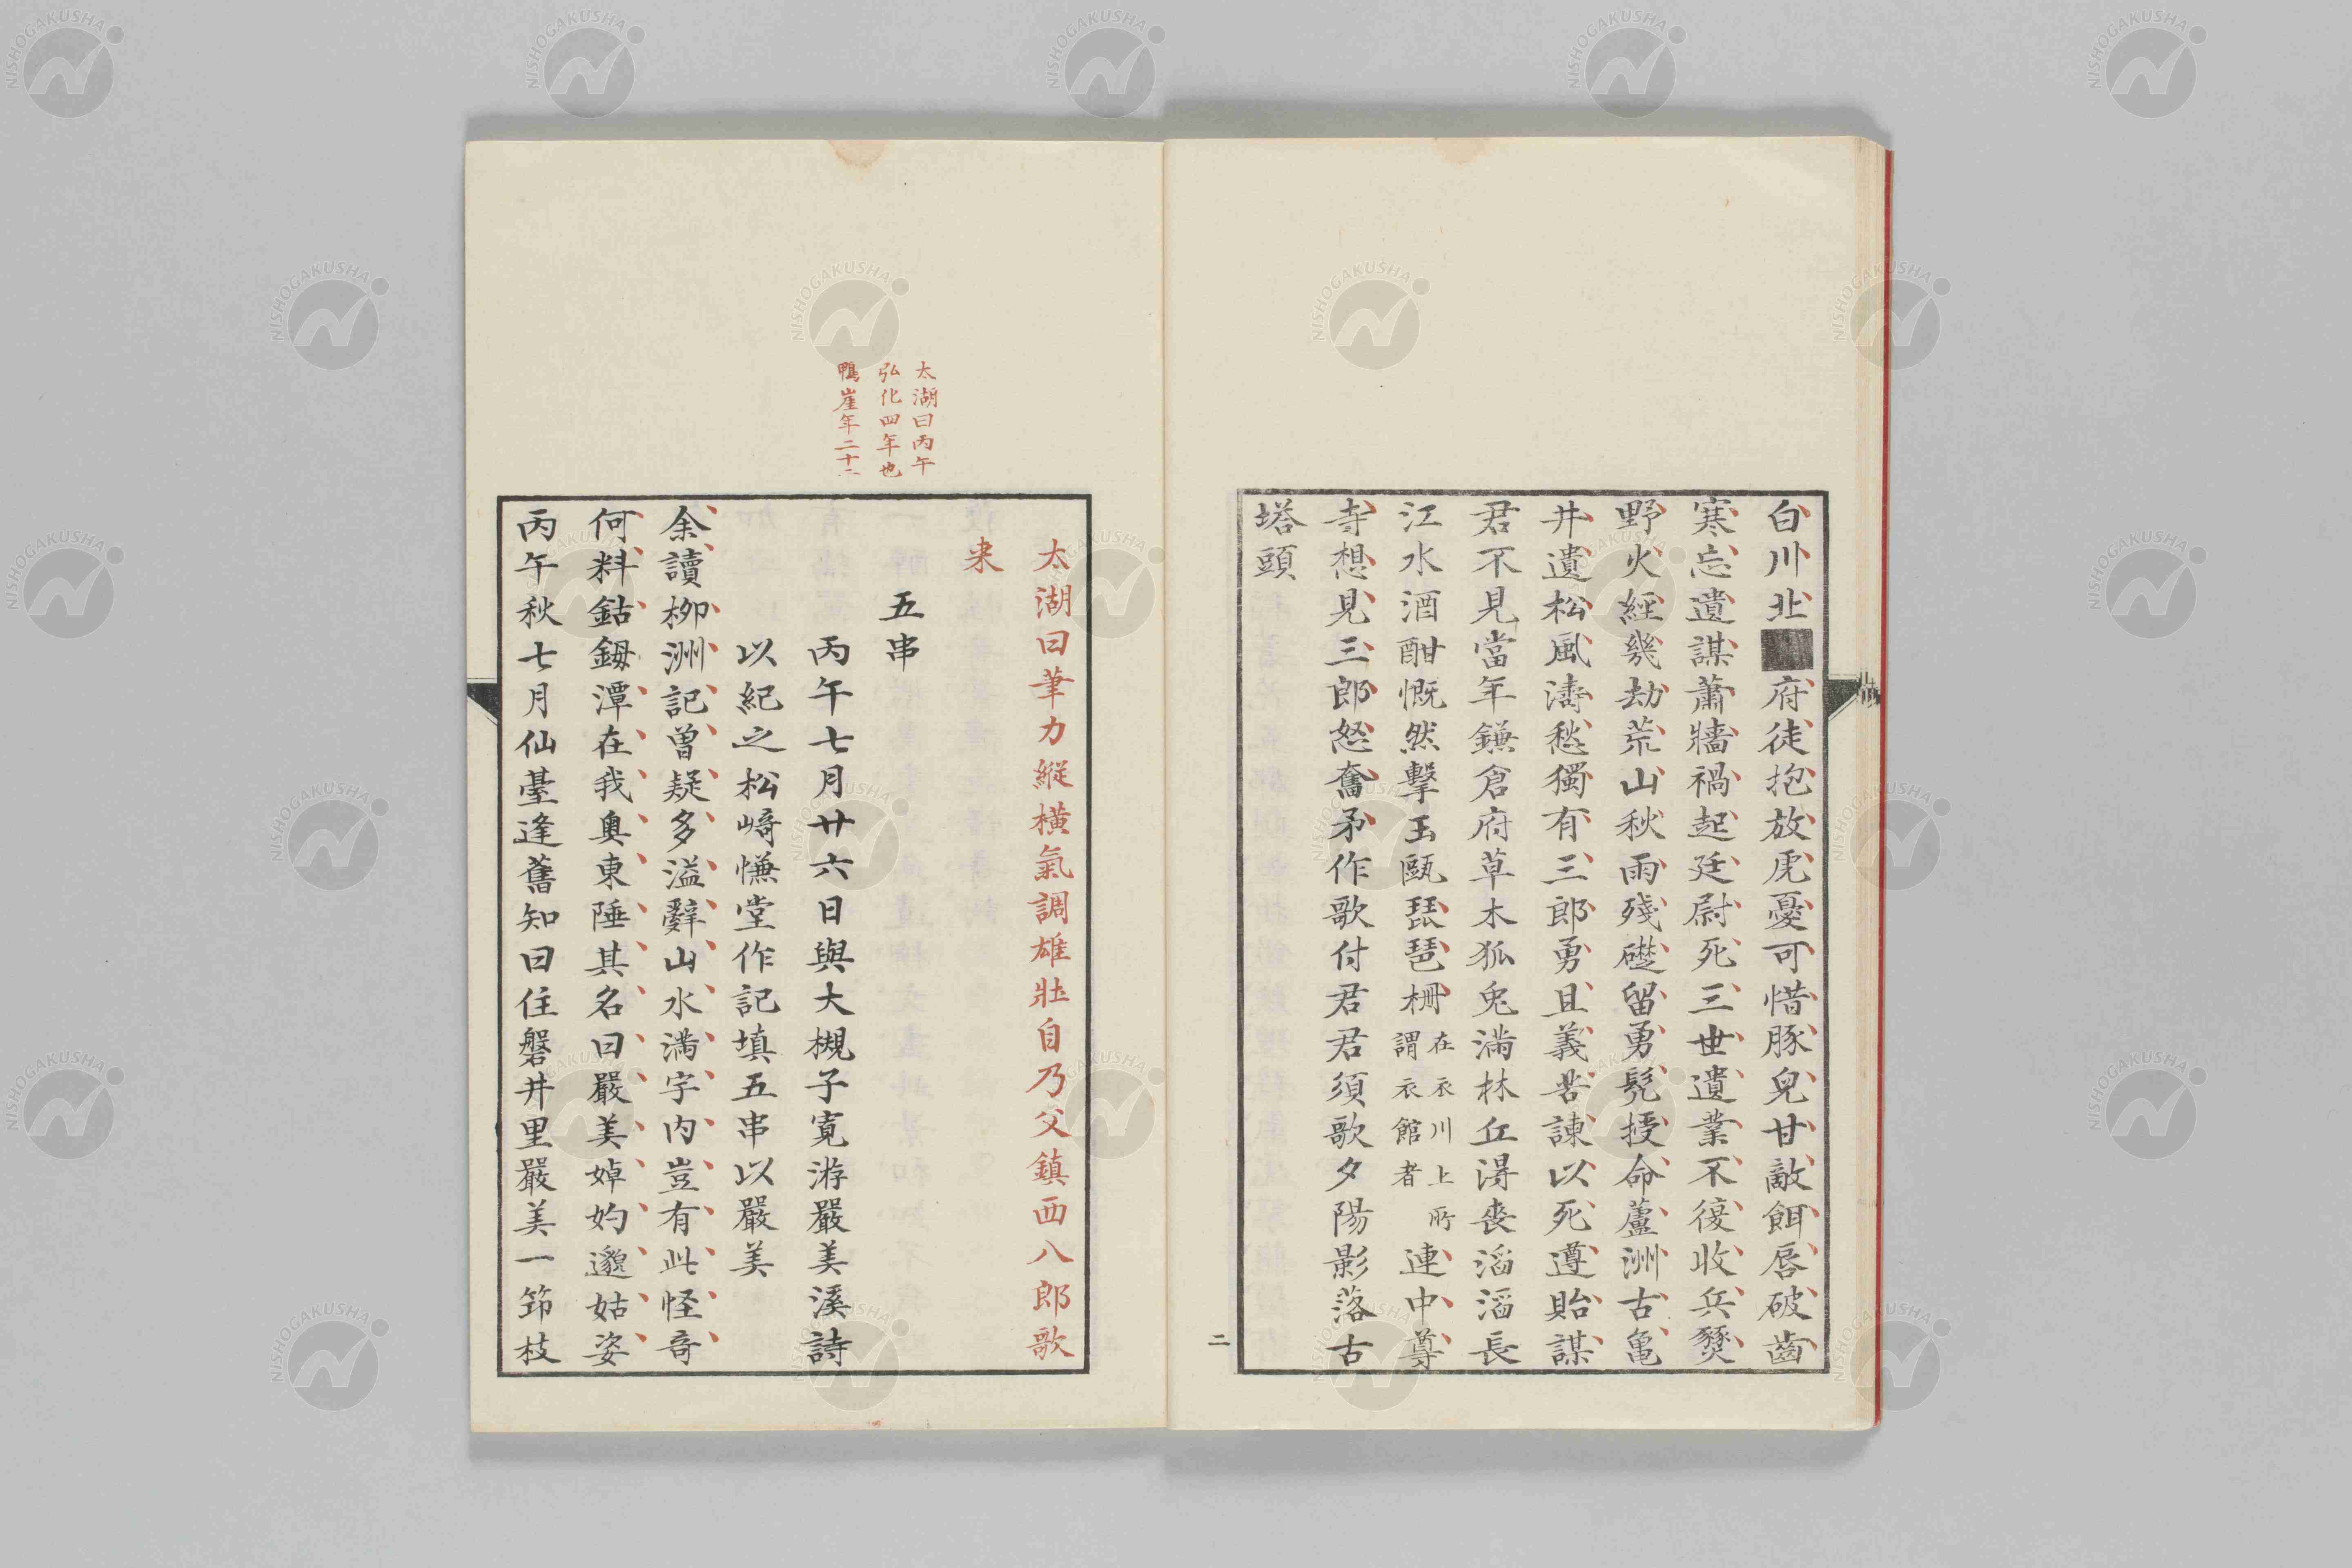 白川北■府徒抱放虎憂可惜豚兒甘敵餌唇破齒
寒忘遺謀蕭牆禍起廷尉死三世遺業不復收兵燹
野火經幾劫荒山秋雨殘礎留勇髡授命蘆洲古亀
井遺松風濤愁獨有三郎勇且義苦諫以死遵貽謀
君不見當年鎌倉府草木狐兎滿林丘淂喪滔滔長
江水酒酣慨然擊玉甌琵琶柵在衣川上所謂衣館者連中尊
寺想見三郎怒奮矛作歌付君君須歌夕陽影落古
塔頭
二
太湖曰筆力縱橫氣調雄壯自乃父鎮西八郎歌
来
太湖曰丙午
弘化四年也
鴨崖年二十二
五串
丙午七月廿六日與大槻子寬游嚴美溪詩
以紀之松﨑慊堂作記填五串以嚴美
余讀柳洲記曾疑多溢辭山水滿宇内豈有此怪奇
何料鈷鉧潭在我奥東陲其名曰嚴美婥妁邈姑姿
丙午秋七月仙臺逢舊知曰住磐井里嚴美一笻枝
NISHOGAKUSHA